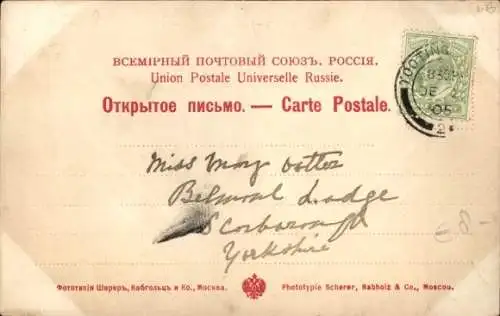 ВСЕМІРНЫЙ ПОЧТОВЫЙ СОЮЗЪ. РОССІЯ.
Union Postale Universelle Russie.
Открытое письмо. — Carte Postale.
TOOTING
8 30 PM
DE
05
Miss May
Belmont Lodge
Scorborough
Yorkshire
Фототипія Шереръ, Набгольцъ и Ко., Москва.
Phototypie Scherer, Nabholz & Co., Moscou.